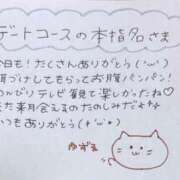 デートコースの本指名さま
今日も!たくさんありがとう(˙ω˙)
づけしてもらってお腹パンパン!
んびりテレビ観て楽しかったね♡
た来月会えるのたのしみだよ
いつもありがとう(*˙ω˙*)
ゆずき